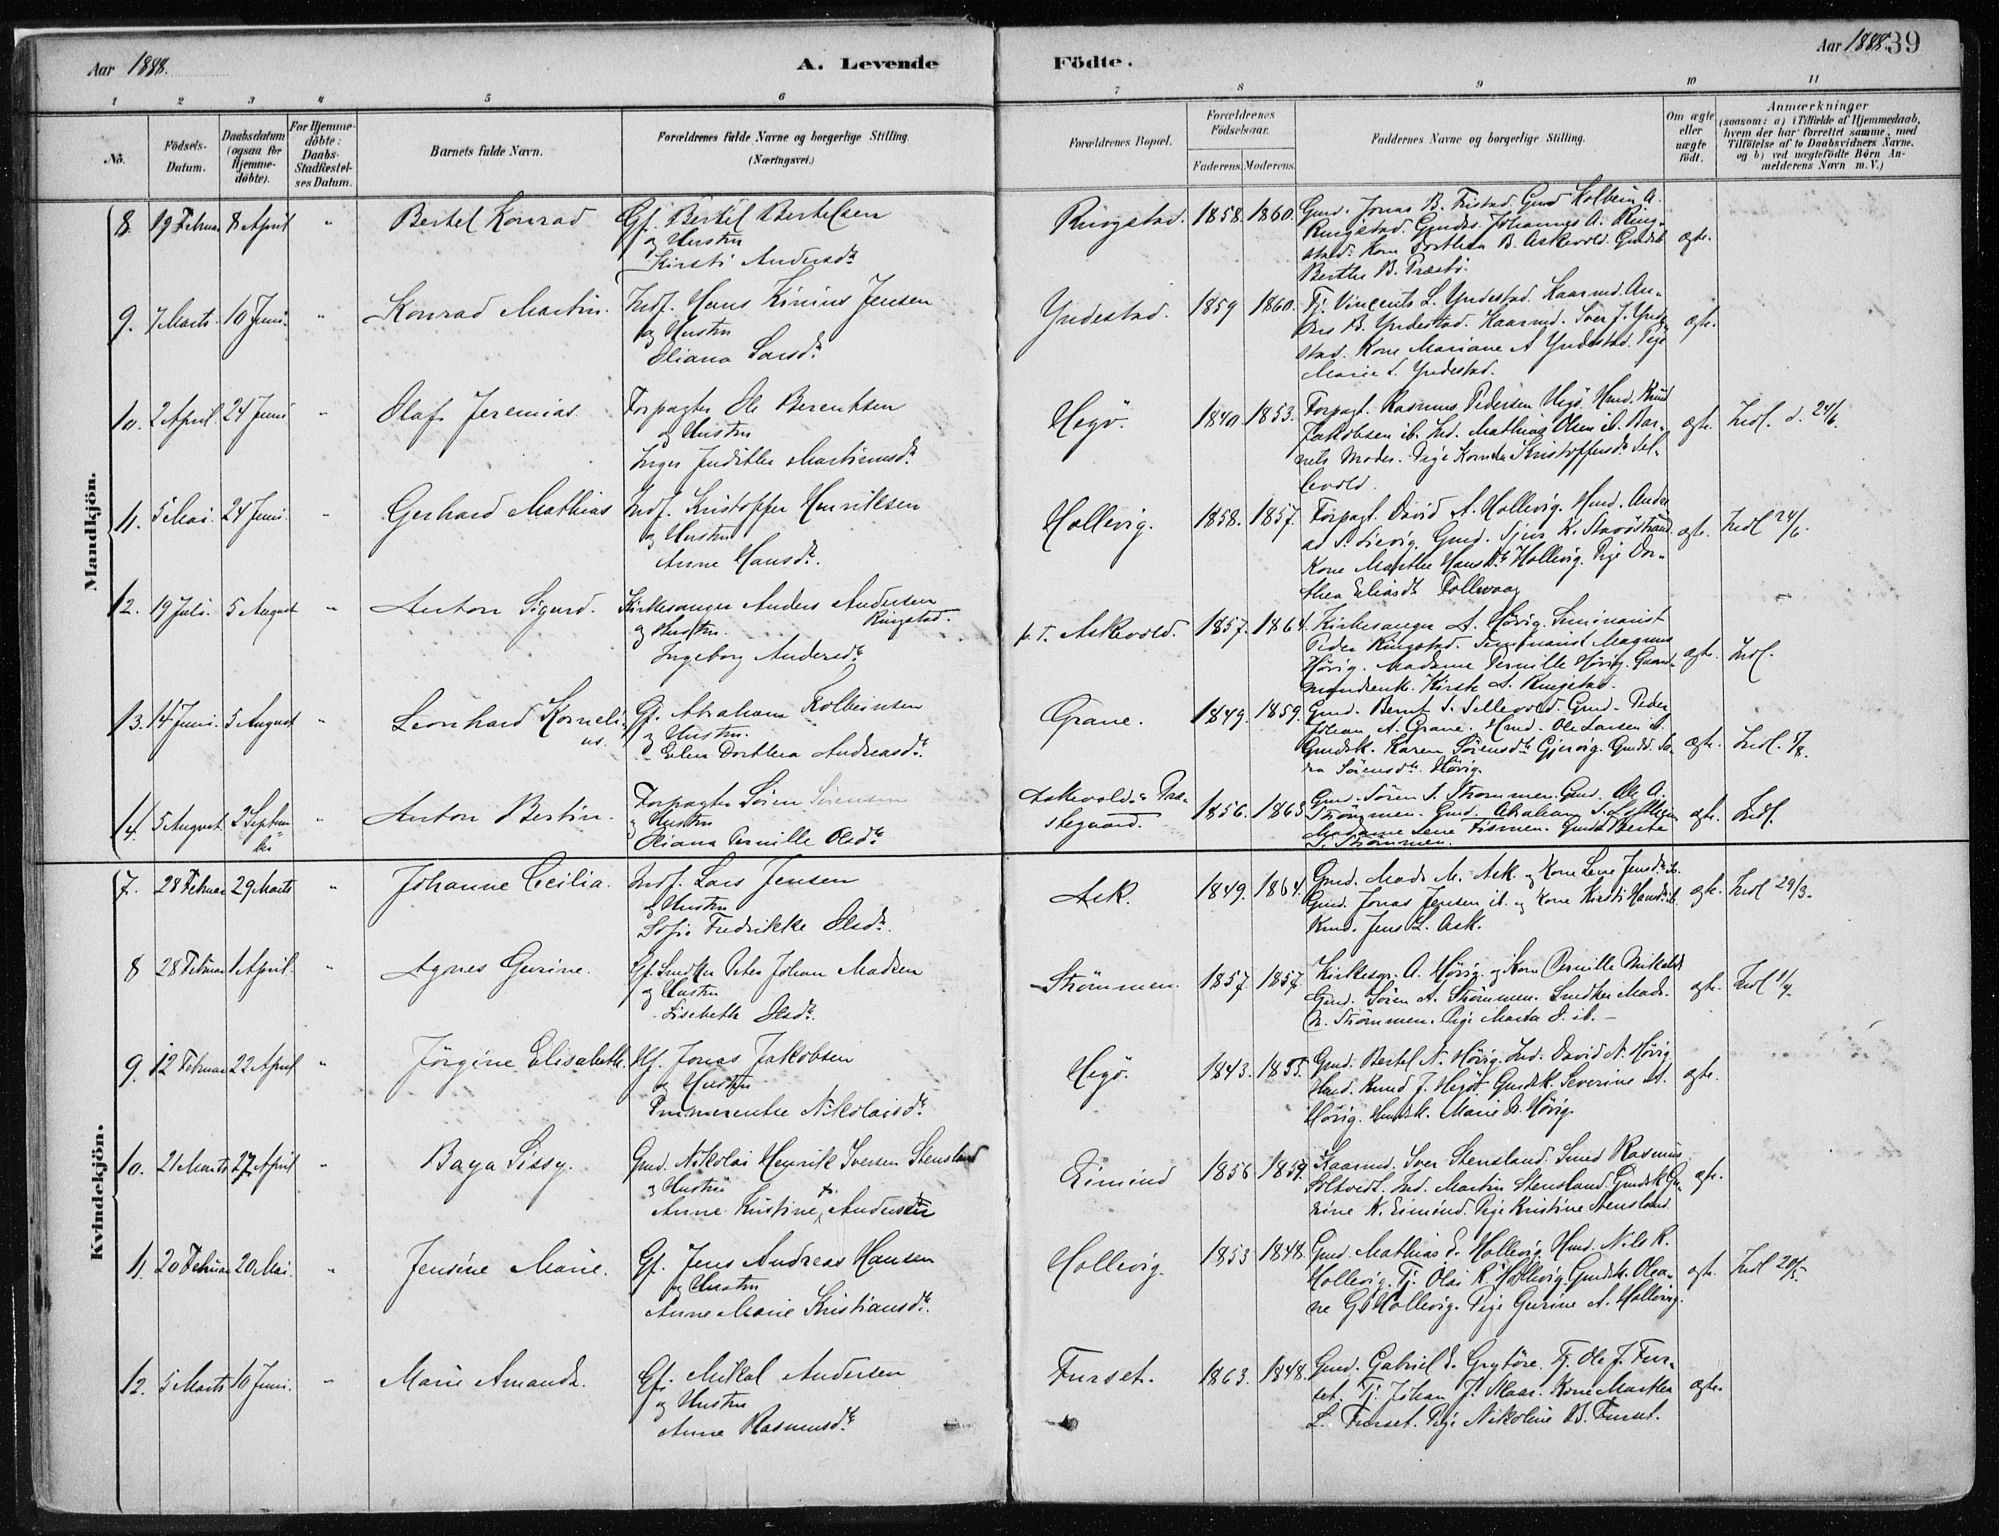 Aar 1888.
A. Levende
Födte.
Aar 1888.
39
1 2 3 4 5 6 7 8 9 10 11
No.
Födsels-
Datum.
Daabsdatum
(ogsaa for
Hjemme-
döbte).
For Hjemme-
döbte:
Daabs-
Stadfæstel-
ses Datum.
Barnets fulde Navn.
Forældrenes fulde Navne og borgerlige Stilling.
(Næringsvei.)
Forældrenes Bopæl.
Forældrenes
Födselsaar.
Faderens. Moderens.
Faddernes Navne og borgerlige Stilling.
Om ægte
eller
uægte
födt.
Anmærkninger
(saasom: a) i Tilfælde af Hjemmedaab,
hvem der har forrettet samme, med
Tilföielse af to Daabsvidners Navne,
og b) ved uægtefödte Börn An-
melderens Navn m.V.)
Mandkjön.
8. 19 Februar 8 April " Bertel Konrad Gf. Bertil Bertelsen
og Hustru
Kirsti Andersdtr
Ringstad. 1858. 1860.
Gmd. Jonas B. Fristad. Gmd Kolbein A.
Ringstad. Gmds. Johannes A. Ring-
stad. Kone Dorthea B. Askevold. Gmdsk
Berthe B. Præstö.
ægte.
9. 7 Marts. 10 Juni. " Konrad Martin. Indf. Hans Kinius Jensen
og Hustru
Oliana Larsdtr
Yndestad. 1859 1860.
Tj. Vincents L. Yndestad. Kaarmd. An-
ders B. Yndestad. Kaarmd. Iver J. Ynde-
stad. Kone Mariane A Yndestad. Pige
Marie L. Yndestad.
ægte.
10. 2 April. 24 Juni " Olaf Jeremias. Forpagter Ole Berentsen
og Hustru
Inger Judithe Martinusdtr
Hegö. 1840. 1853.
Forpagt. Rasmus Pedersen Hegö. Hmd. Knud
Jakobsen ib. Ind. Mathias Olsen ib. Bar-
nets Moder. Pige Kornelia Kristoffersdtr Sel-
levold.
ægte. Indl. d. 24/6.
11. 5 Mai. 24 Juni. " Gerhard Mathias Indf. Kristoffer Henriksen
og Hustru
Anne Hansdtr.
Hollevig. 1858. 1857.
Forpagt. David A. Hollevig. Hmd. Andre-
as S. Lievig. Gmd. Sjur K. Stavöstrand.
Kone Marthe Hansdtr Hollevig. Pige Dor-
thea Eliasdtr Tollevaag
ægte. Indl 24/6.
12. 19 Juli. 5 August " Anton Sigurd. Kirkesanger Anders Andersen
Ringstad.
og Hustru.
Ingeborg Andersdtr
p. T. Askevold. 1857. 1864.
Kirkesanger A. Hövig. Seminarist
Peder Ringstad. Seminarist Magnus
Hövig. Madame Pernille Hövig. Gaard-
mandsenk. Kirsti A. Ringstad.
ægte. Indl.
13. 14 Juni. 5 August " Leonhard Korneli-
us.
Gf. Abraham Kolbeinsen
og Hustru.
Elen Dorthea Andreasdtr.
Grane. 1849. 1859.
Gmd. Bernt S. Sellevold. Gmd. Peder
Johan A. Grane. Hmd. Ole Larsen ib.
Gmdsk. Karen Sörensdtr Gjervig. Gmdd. Sa-
ra Sörensdtr. Hövig.
ægte. Indl. 5/8.
14. 5 August. 2 Septem-
ber
" Anton Bertin. Forpagter Sören Sörensen
og Hustru
Oliana Pernille Olsdtr
Askevolds Præ-
stegaard. 1856. 1863
Gmd. Sören A. Strömmen. Gmd. Ole A.
Strömmen. Gmd. Abraham
Madame Lene Fismen. Gmdd Berte
S. Strömmen.
ægte. Indl.
Kvindekjön.
7. 28 Februar 29 Marts " Johanne Cecilia. Indf. Lars Jensen
og Hustru
Sofie Fredrikke Olsdtr.
Ask. 1849. 1864.
Gmd. Mads M. Ask. og Kone Lene Jensdtr ib.
Gmd. Jonas Jensen ib. og Kone Kirsti Hansdtr ib.
Kmd. Jens L. Ask.
ægte. Indl 29/3.
8 28 Februar 1 April. " Agnes Gurine. Gf. Snedker Peter Johan Madsen
og Hustru
Lisebeth Olsdtr.
Strömmen. 1857. 1857.
Kirkesgr. A. Hövig. og Kone Pernille Mikalsdtr
Gmd. Sören A. Strömmen. Snedker Mads
N. Strömmen. Pige Marta O. ib.
ægte. Indl 1/4.
9. 12 Februar 22 April " Jörgine Elisabeth. Hf. Jonas Jakobsen
og Hustru
Emmerentse Nikolaisdtr.
Hegö. 1843. 1855.
Gmd. Bertel N. Hövig. Ind. David N. Hövig
Hmd. Knud J. Hegö. Gmdsk. Severine A.
Hövig. Hmdsk. Marie D. Hövig.
ægte.
10. 21 Marts 27 April " Baya Sissy. Gmd. Nikolai Henrik Iversen Stensland
og Hustru
Anne Kristine Andersdtr
Eimind 1856 1859.
Kaarmd. Iver Stensland. Smed Rasmus
Soltvedt. Ind. Martin Stensland. Gmdsk Gu-
rine K. Eimind. Pige Kristine Stensland.
ægte.
11. 20 Februar 20 Mai. " Jensine Marie. Gf. Jens Andreas Hansen
og Hustru
Anne Marie Kristiansdtr.
Hollevig. 1853 1848.
Gmd. Mathias E. Hollevig. Hmd. Nils R.
Hollevig. Tj. Olai R. Hollevig. Gmdsk. Olea-
ne G. Hollevig. Pige Gurine A. Hollevig.
ægte. Indl 20/5.
12. 5 Marts 10 Juni. " Marie Amanda. Gf. Mikal Andersen
og Hustru
Anne Rasmusdtr
Furset. 1863. 1848.
Gmd. Gabriel E. Grytöre. Tj. Ole J. Fur-
set. Tj. Johan J. Klaar. Kone Marthe
L. Furset. Pige Nikoline B. Furset.
ægte.